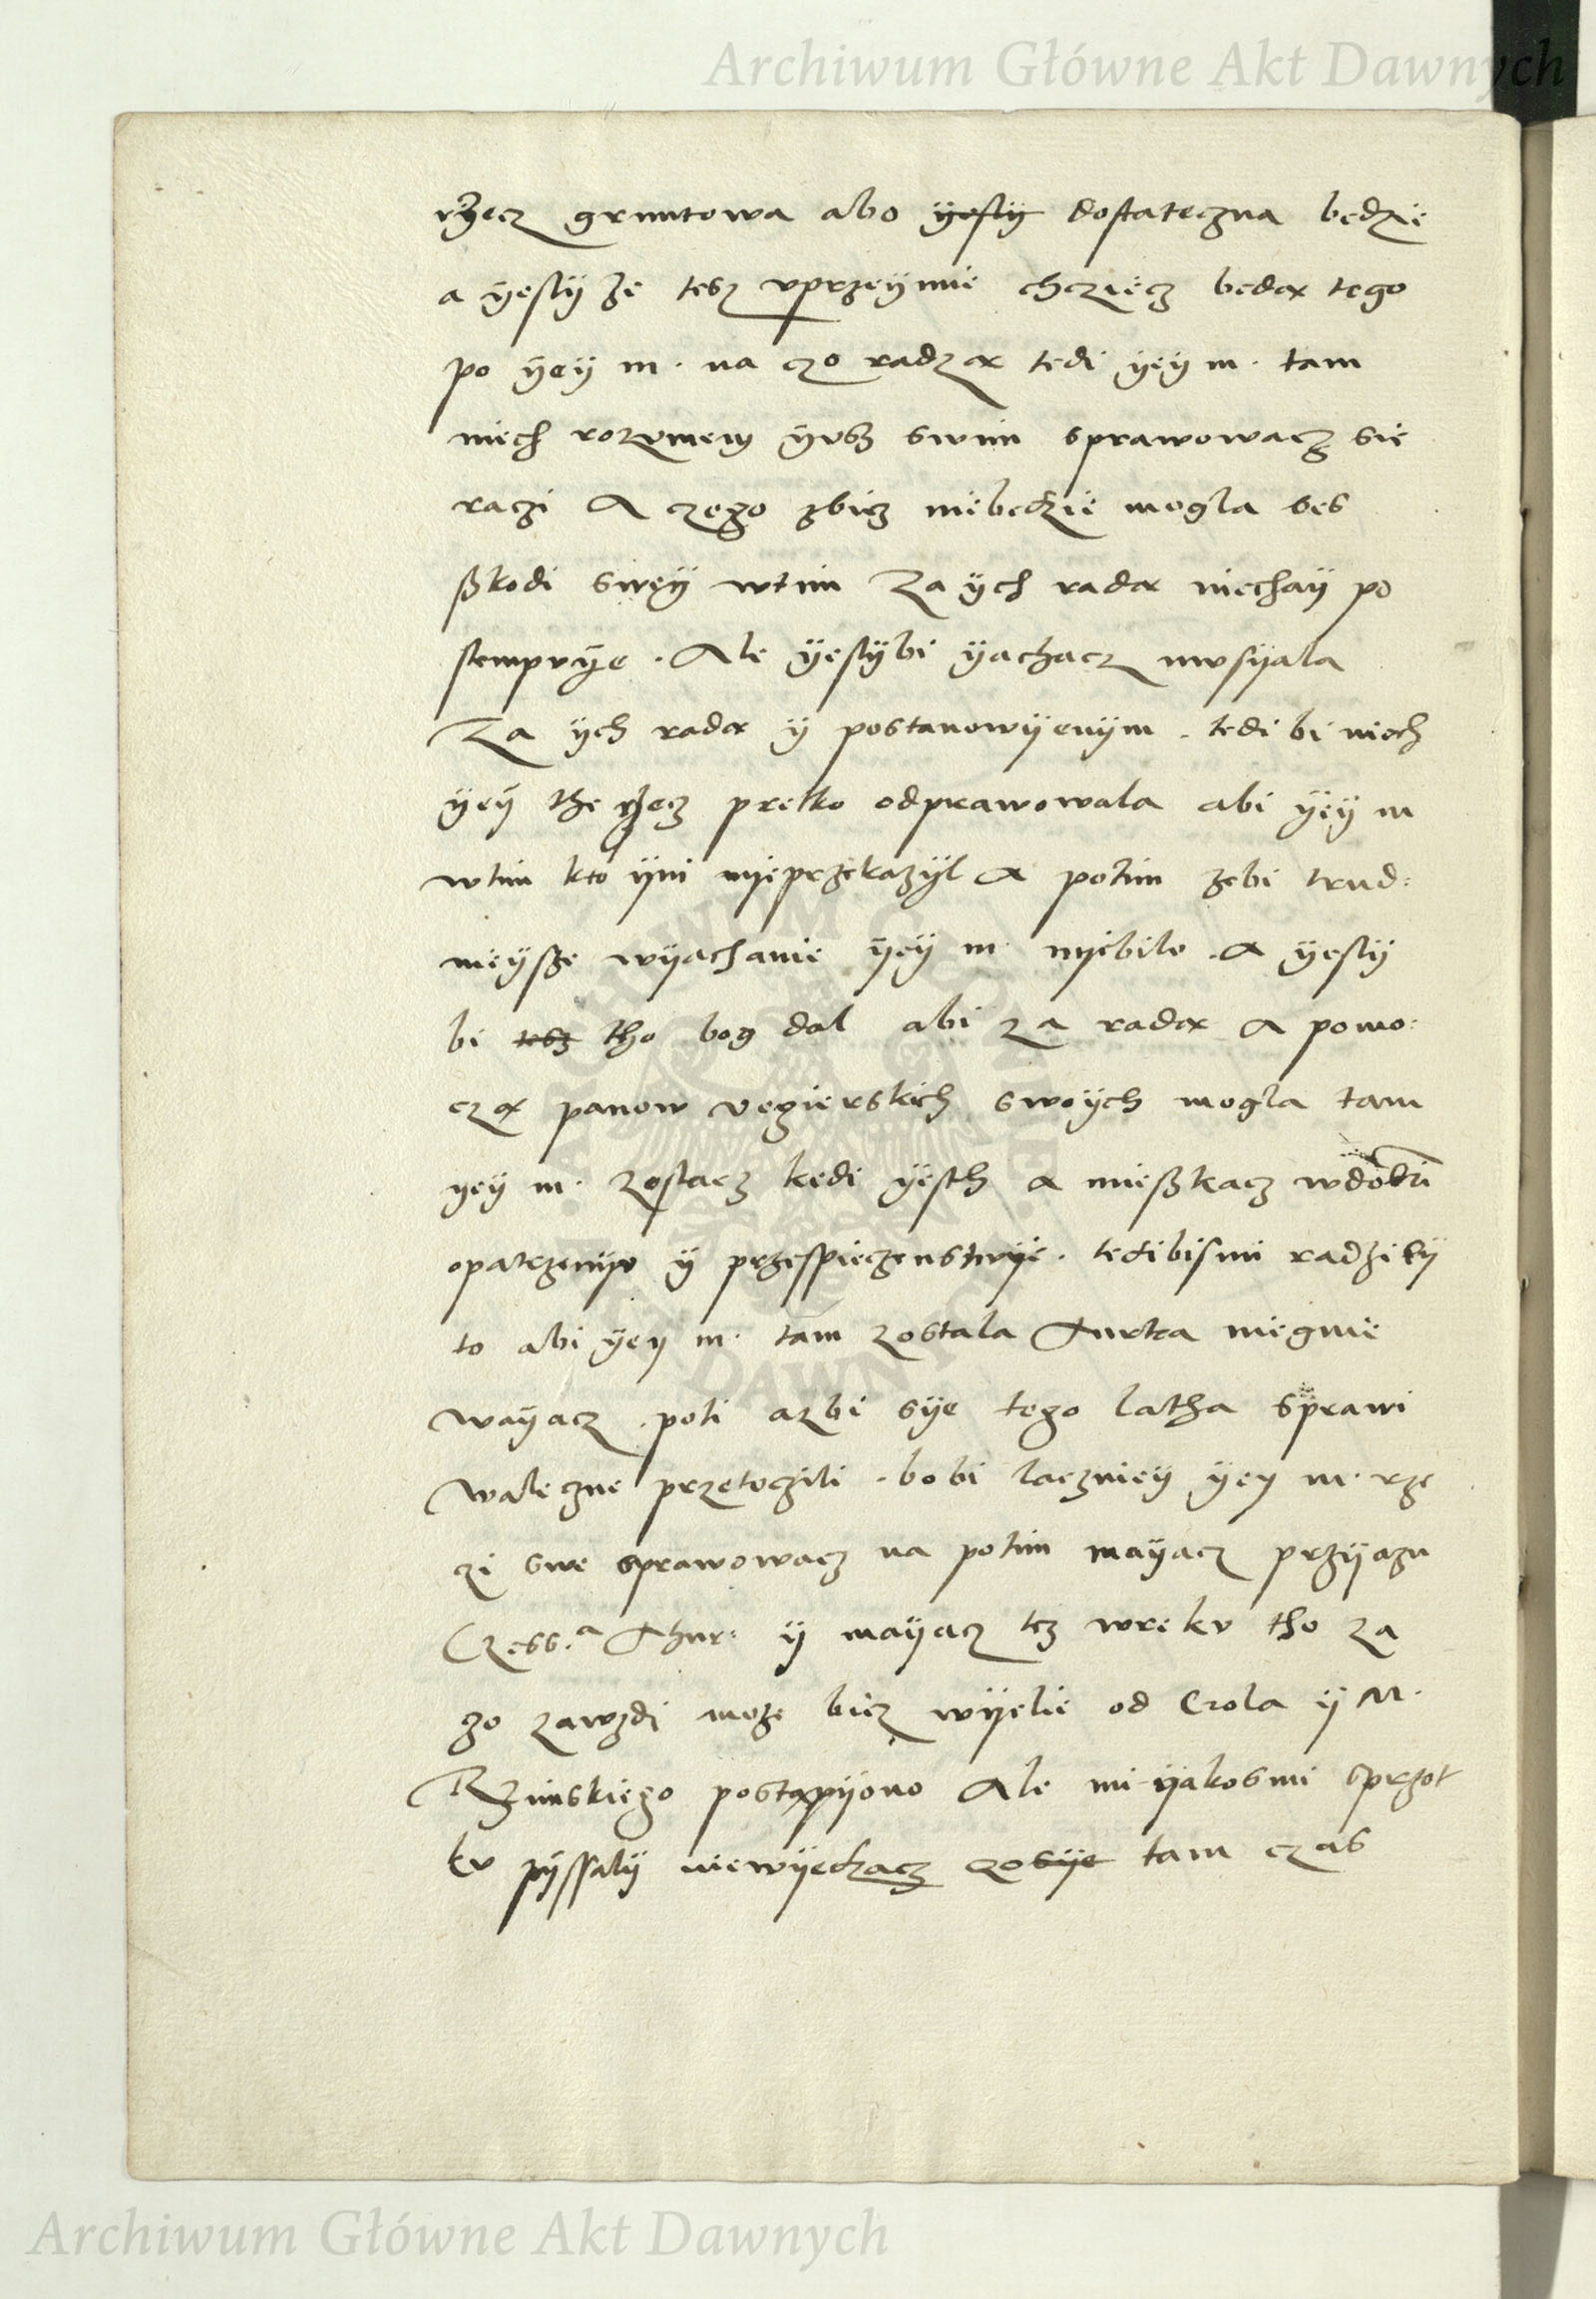 Archiwum Główne Akt Dawnych
rzecz gruntowa abo yesly dostateczna będzie
a yesly ze tesz vprzeymie chcziecz bedą tego
po yey m. na czo radzą tedi yey m. tam
niech rozvmem yvsz swim sprawowacz sie
raczi A czego zbicz niebedzie mogla bes
sskodi swey wtim Za ych radą niechay po
stempvye. Ale yeslybi yachacz mvsyala
Za ych radą y postanowyenym. tedi bi niech
yey the rzecz pretko odprawowala abi yey m
wtim kto yni nyeprzekazyl A potim zebi trud:
nieysze wyachanie yey m. nyebilo. A yesly
bi tesz tho bog dal abi za radą A pomo:
czą panow vegierskich swoych mogla tam
yey m. zostacz kedi yesth A mieszkacz wdobri
opatrzenyv y przespieczenstwye. tedibismi radzily
to abi yey m. tam zostala Turka niegnie
wayacz. poti azbi sye tego latha sprawi
waleczne przetoczili. bo bi laczniey yey m. rze
czi swe sprawowacz na potim mayacz przyazn
Czess.a Thur: y mayacz tez wreku tho za
go zawzdi moze bicz wyelie od Crola y M.
Rzimskiego postąpyono Ale mi yakosmi sprzot
kv pyssaly niewyedzacz czosye tam czas
Archiwum Główne Akt Dawnych